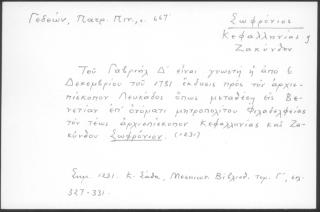 Γεδεών, Πατρ. Πιν, σ. 667
Σωφρόνιος
Κεφαλληνίας ή
Ζακύνθου
Τοῦ Γαβριήλ Δ' εἶναι γνωστή ἡ ἀπό 6
Δεκεμβρίου τοῦ 1781 ἔκδοσις πρός τόν ἀρχιε-
πίσκοπον Λευκάδος ὅπως μεταβάς εἰς Βε-
νετίαν ἐπ' ὀνόματι μητροπολίτου Φιλαδελφείας
τόν τέως ἀρχιεπίσκοπον Κεφαλληνίας καί Ζα-
κύνθου Σωφρόνιον. (1231)
Σημ. 1231. Κ. Σάθα, Μεσαιων. Βιβλιοθ. τομ. Γ', σσ.
327-331.